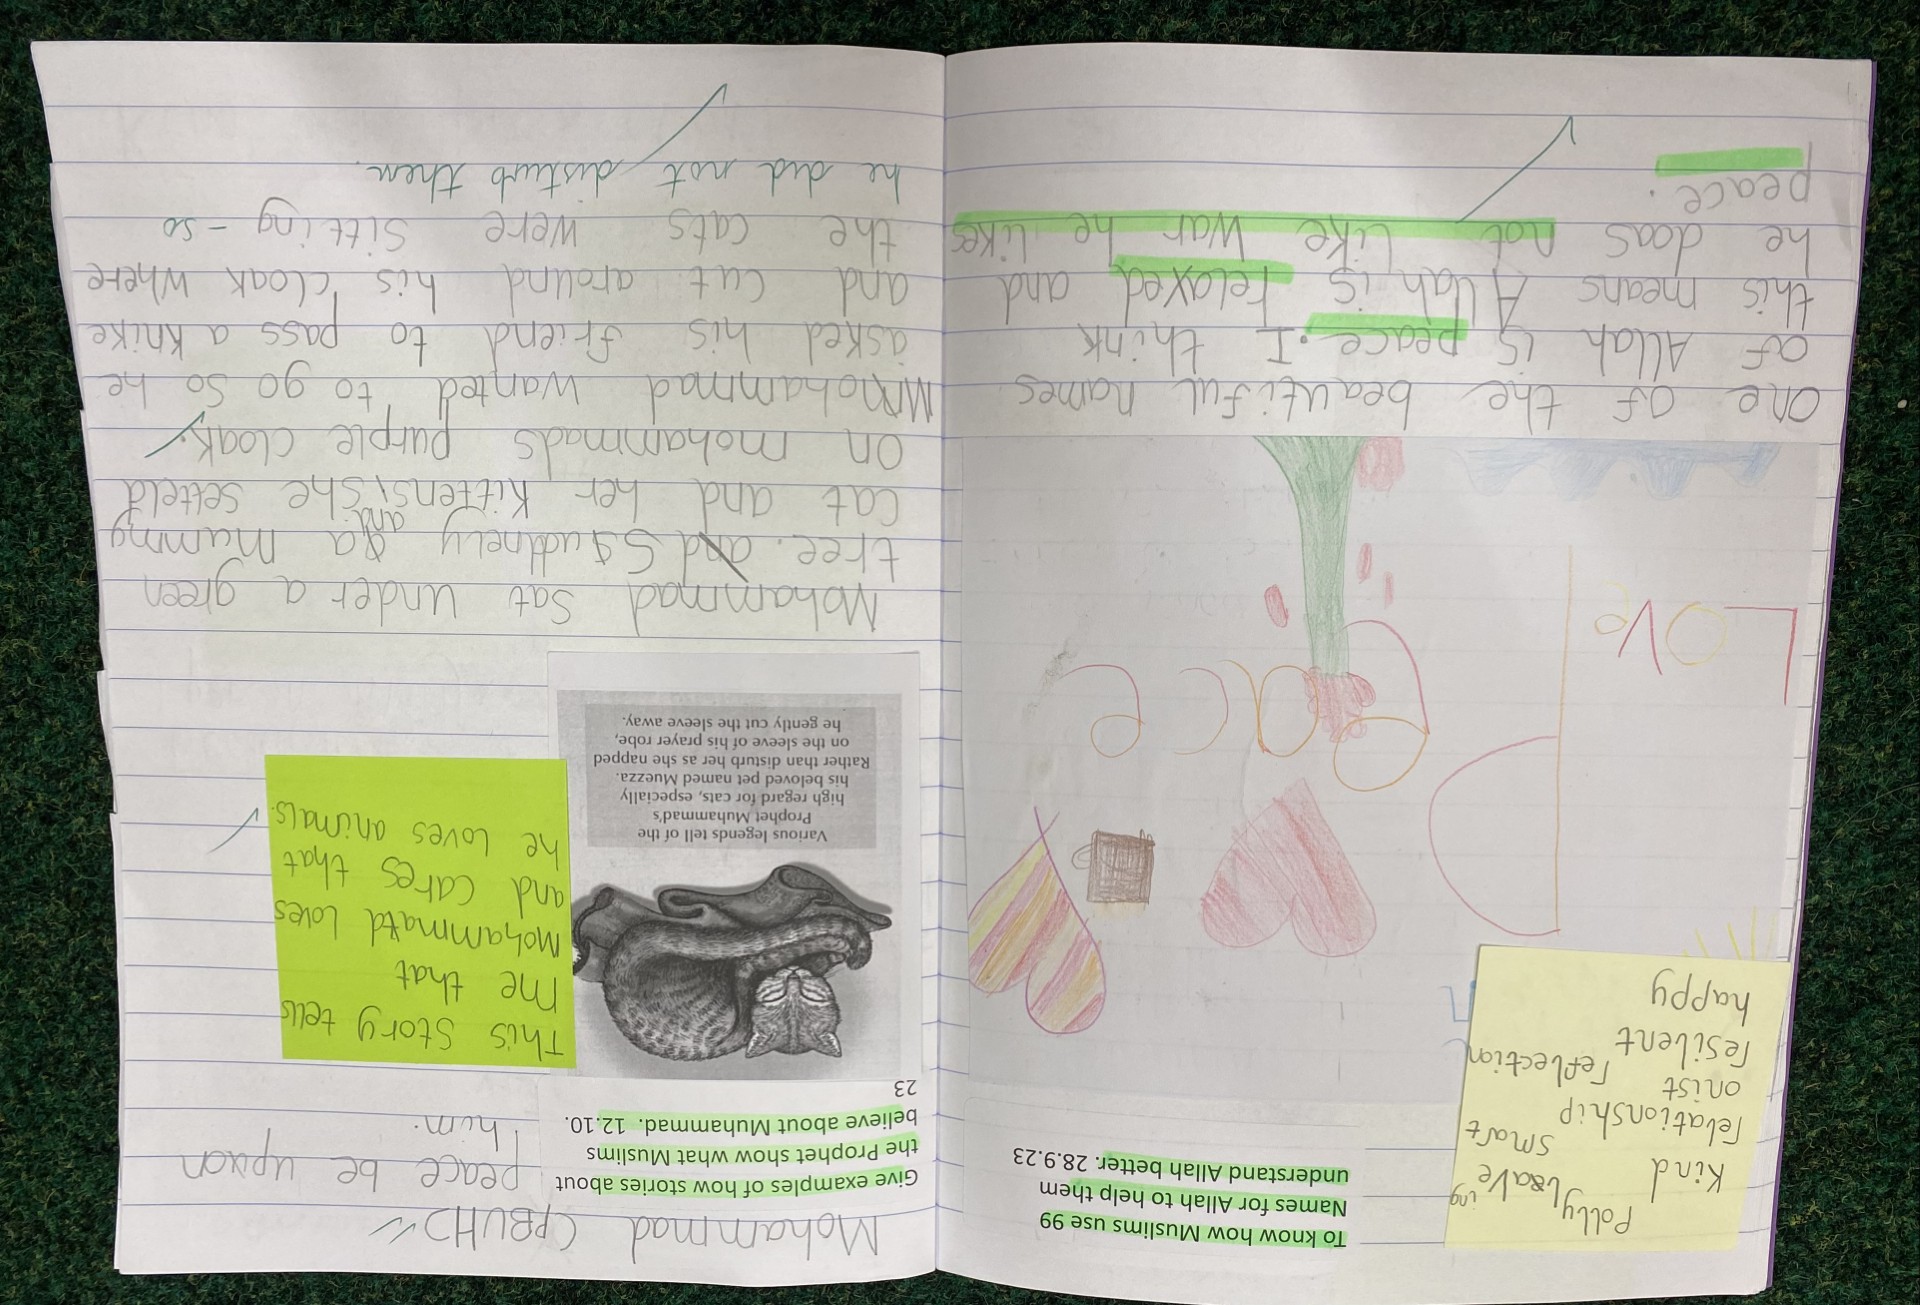 Polly
Kind smart
relationship
onist reflection
resilent
happy
To know how Muslims use 99
Names for Allah to help them
understand Allah better. 28.9.23
Peace
LOVe
one of the beautiful names
of Allah is peace. I think
this means Allah is relaxed and
he doas not like war he likes
peace.
Mohammad (PBUH)
peace be upon
him.
Give examples of how stories about
the Prophet show what Muslims
believe about Muhammad. 12.10.
23
This story tells
me that
Mohammatd loves
and cares that
he loves animals.
Various legends tell of the
Prophet Muhammad's
high regard for cats, especially
his beloved pet named Muezza.
Rather than disturb her as she napped
on the sleeve of his prayer robe,
he gently cut the sleeve away.
Mohammad sat under a green
tree. and Sudnely and a mummy
cat and her kittens, she setteld
on mohammads purple cloak.
Mohammad wanted to go so he
asked his friend to pass a knike
and cut around his cloak where
the cats were sitting - so
he did not disturb them.